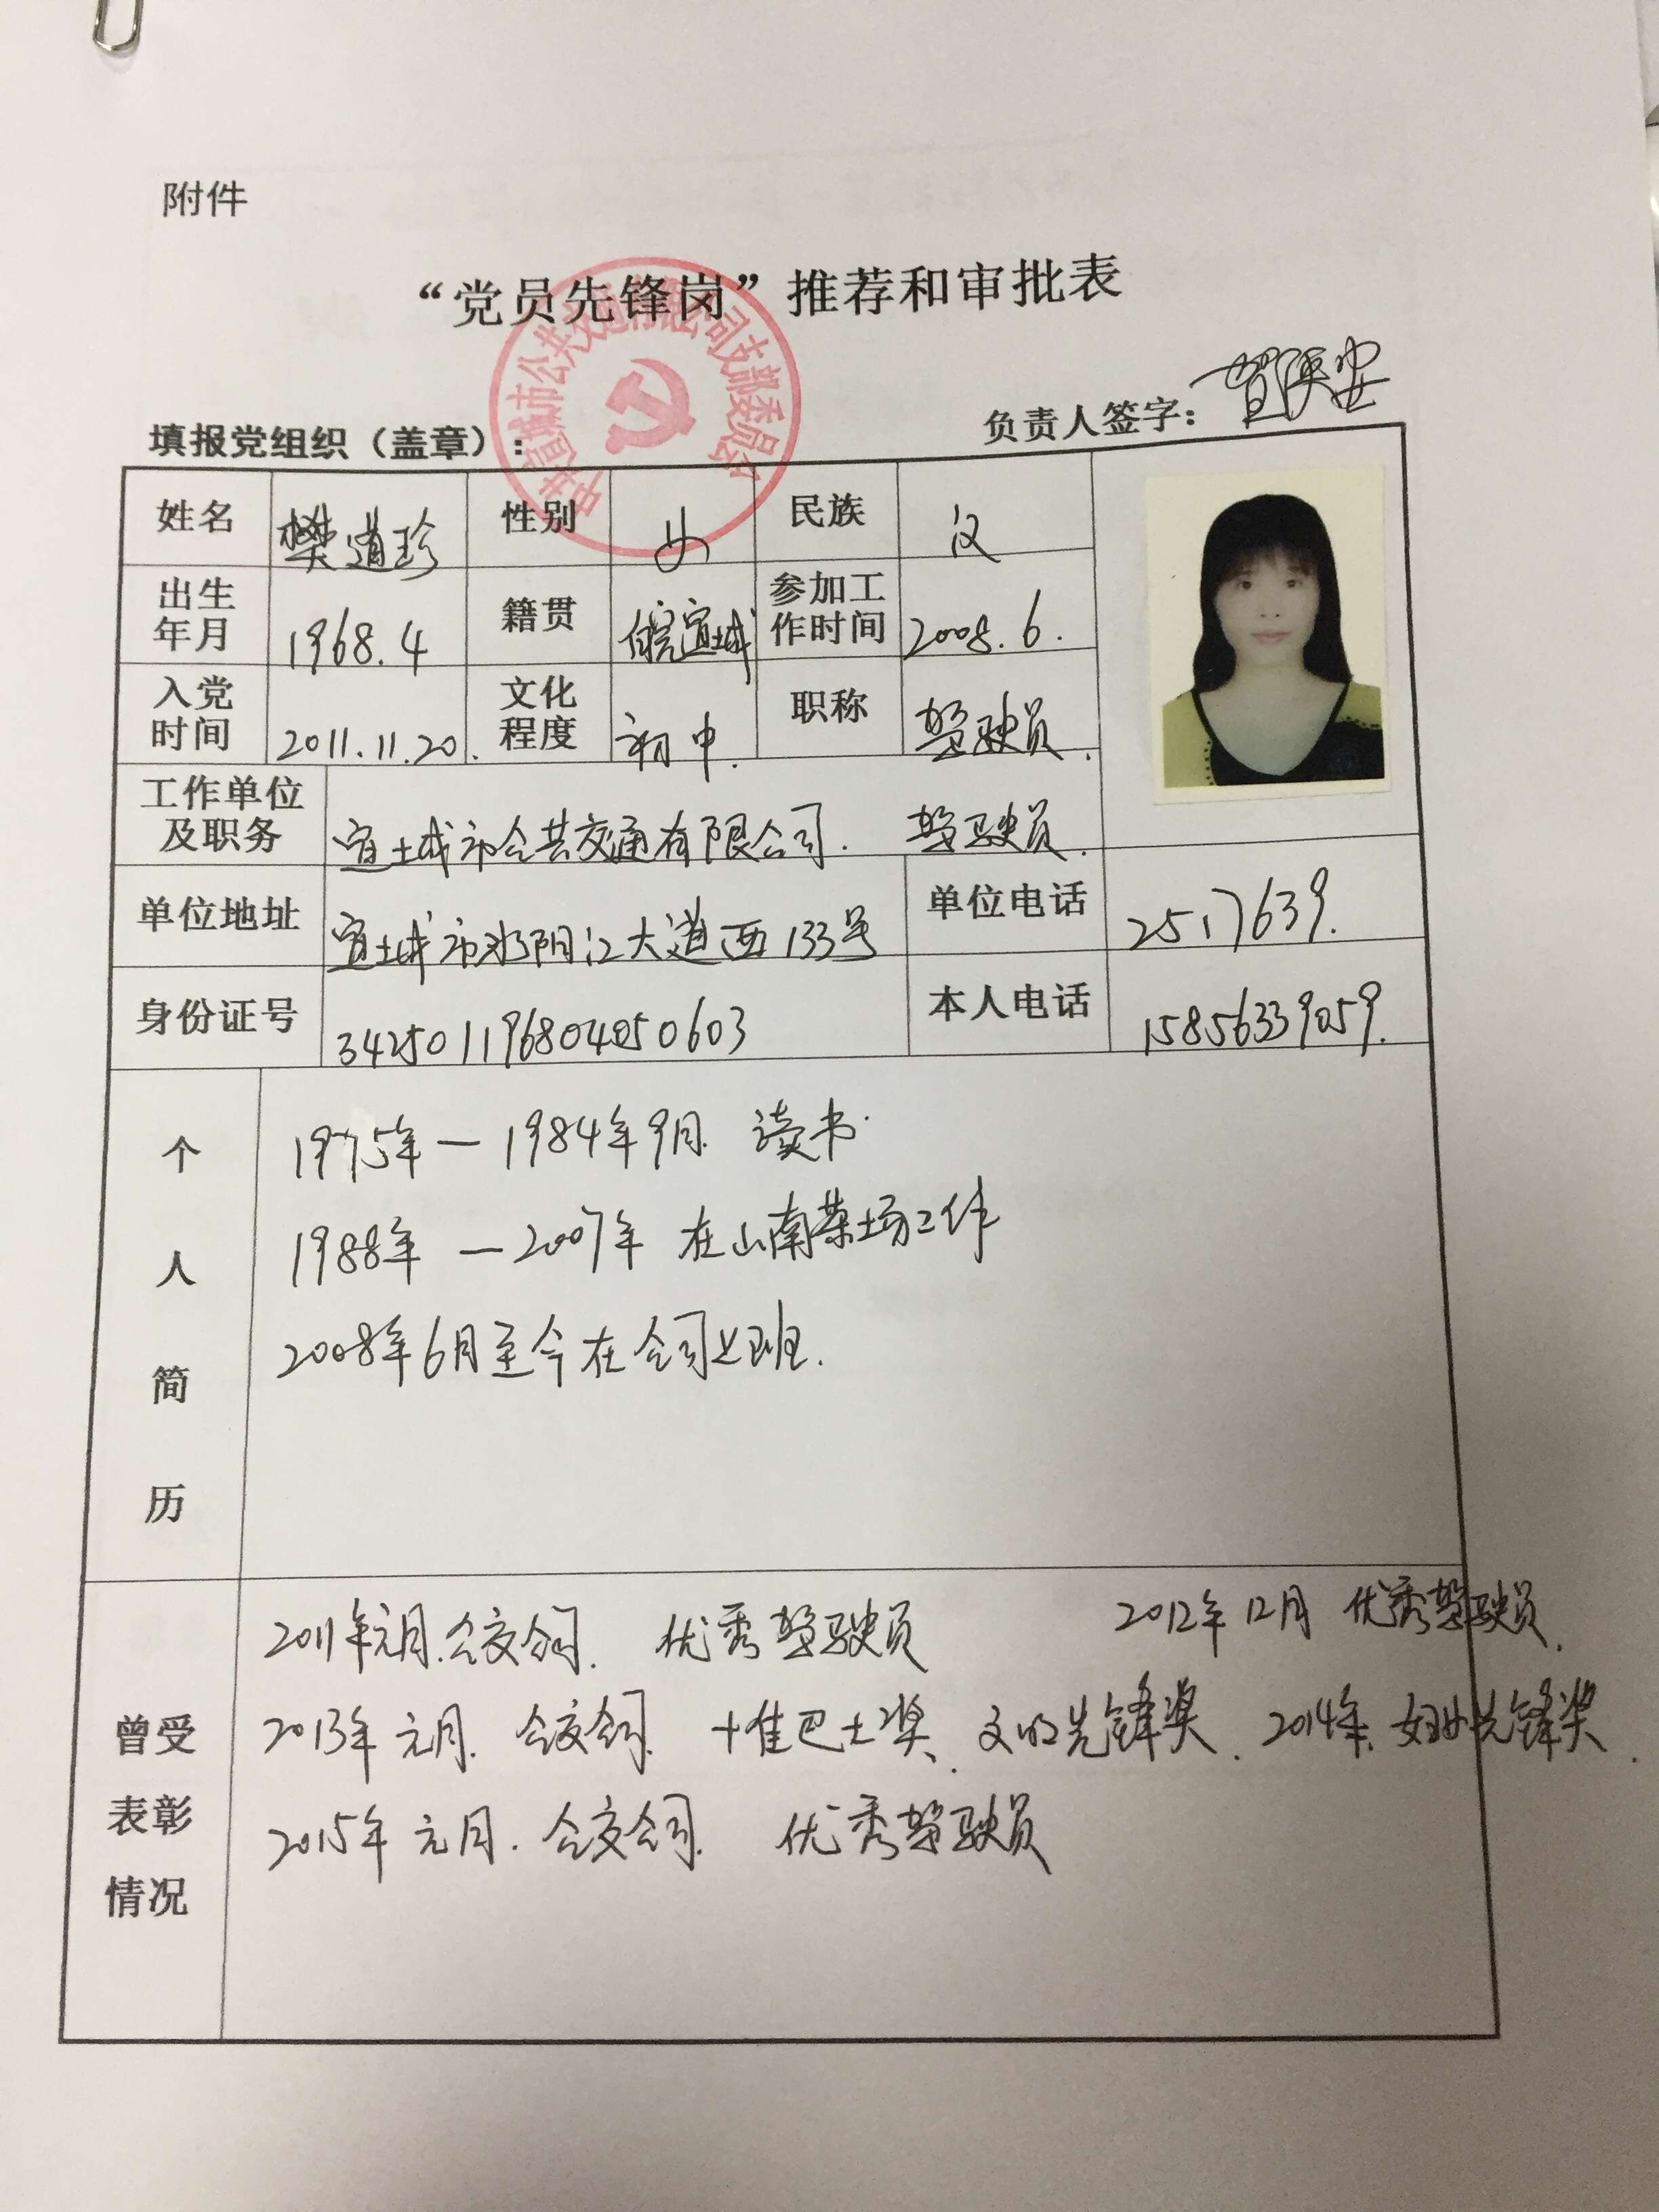 附件
“党员先锋岗”推荐和审批表
填报党组织（盖章）：
中共宣城市公共交通有限公司支部委员会
负责人签字：
姓名 樊道珍 性别 女 民族 汉
出生年月 1968.4 籍贯 安徽宣城 参加工作时间 2008.6.
入党时间 2011.11.20. 文化程度 初中. 职称 驾驶员.
工作单位及职务 宣城市公共交通有限公司. 驾驶员.
单位地址 宣城市水阳江大道西133号 单位电话 2517639.
身份证号 342501196804050603 本人电话 15856339059.
个人简历
1975年—1984年9月 读书.
1988年—2007年 在山南菜场工作
2008年6月至今在公司上班.
曾受表彰情况
2011年元月.公交公司. 优秀驾驶员 2012年12月 优秀驾驶员.
2013年元月. 公交公司. 十佳巴士奖、文明先锋奖. 2014年. 妇女先锋奖.
2015年元月. 公交公司. 优秀驾驶员